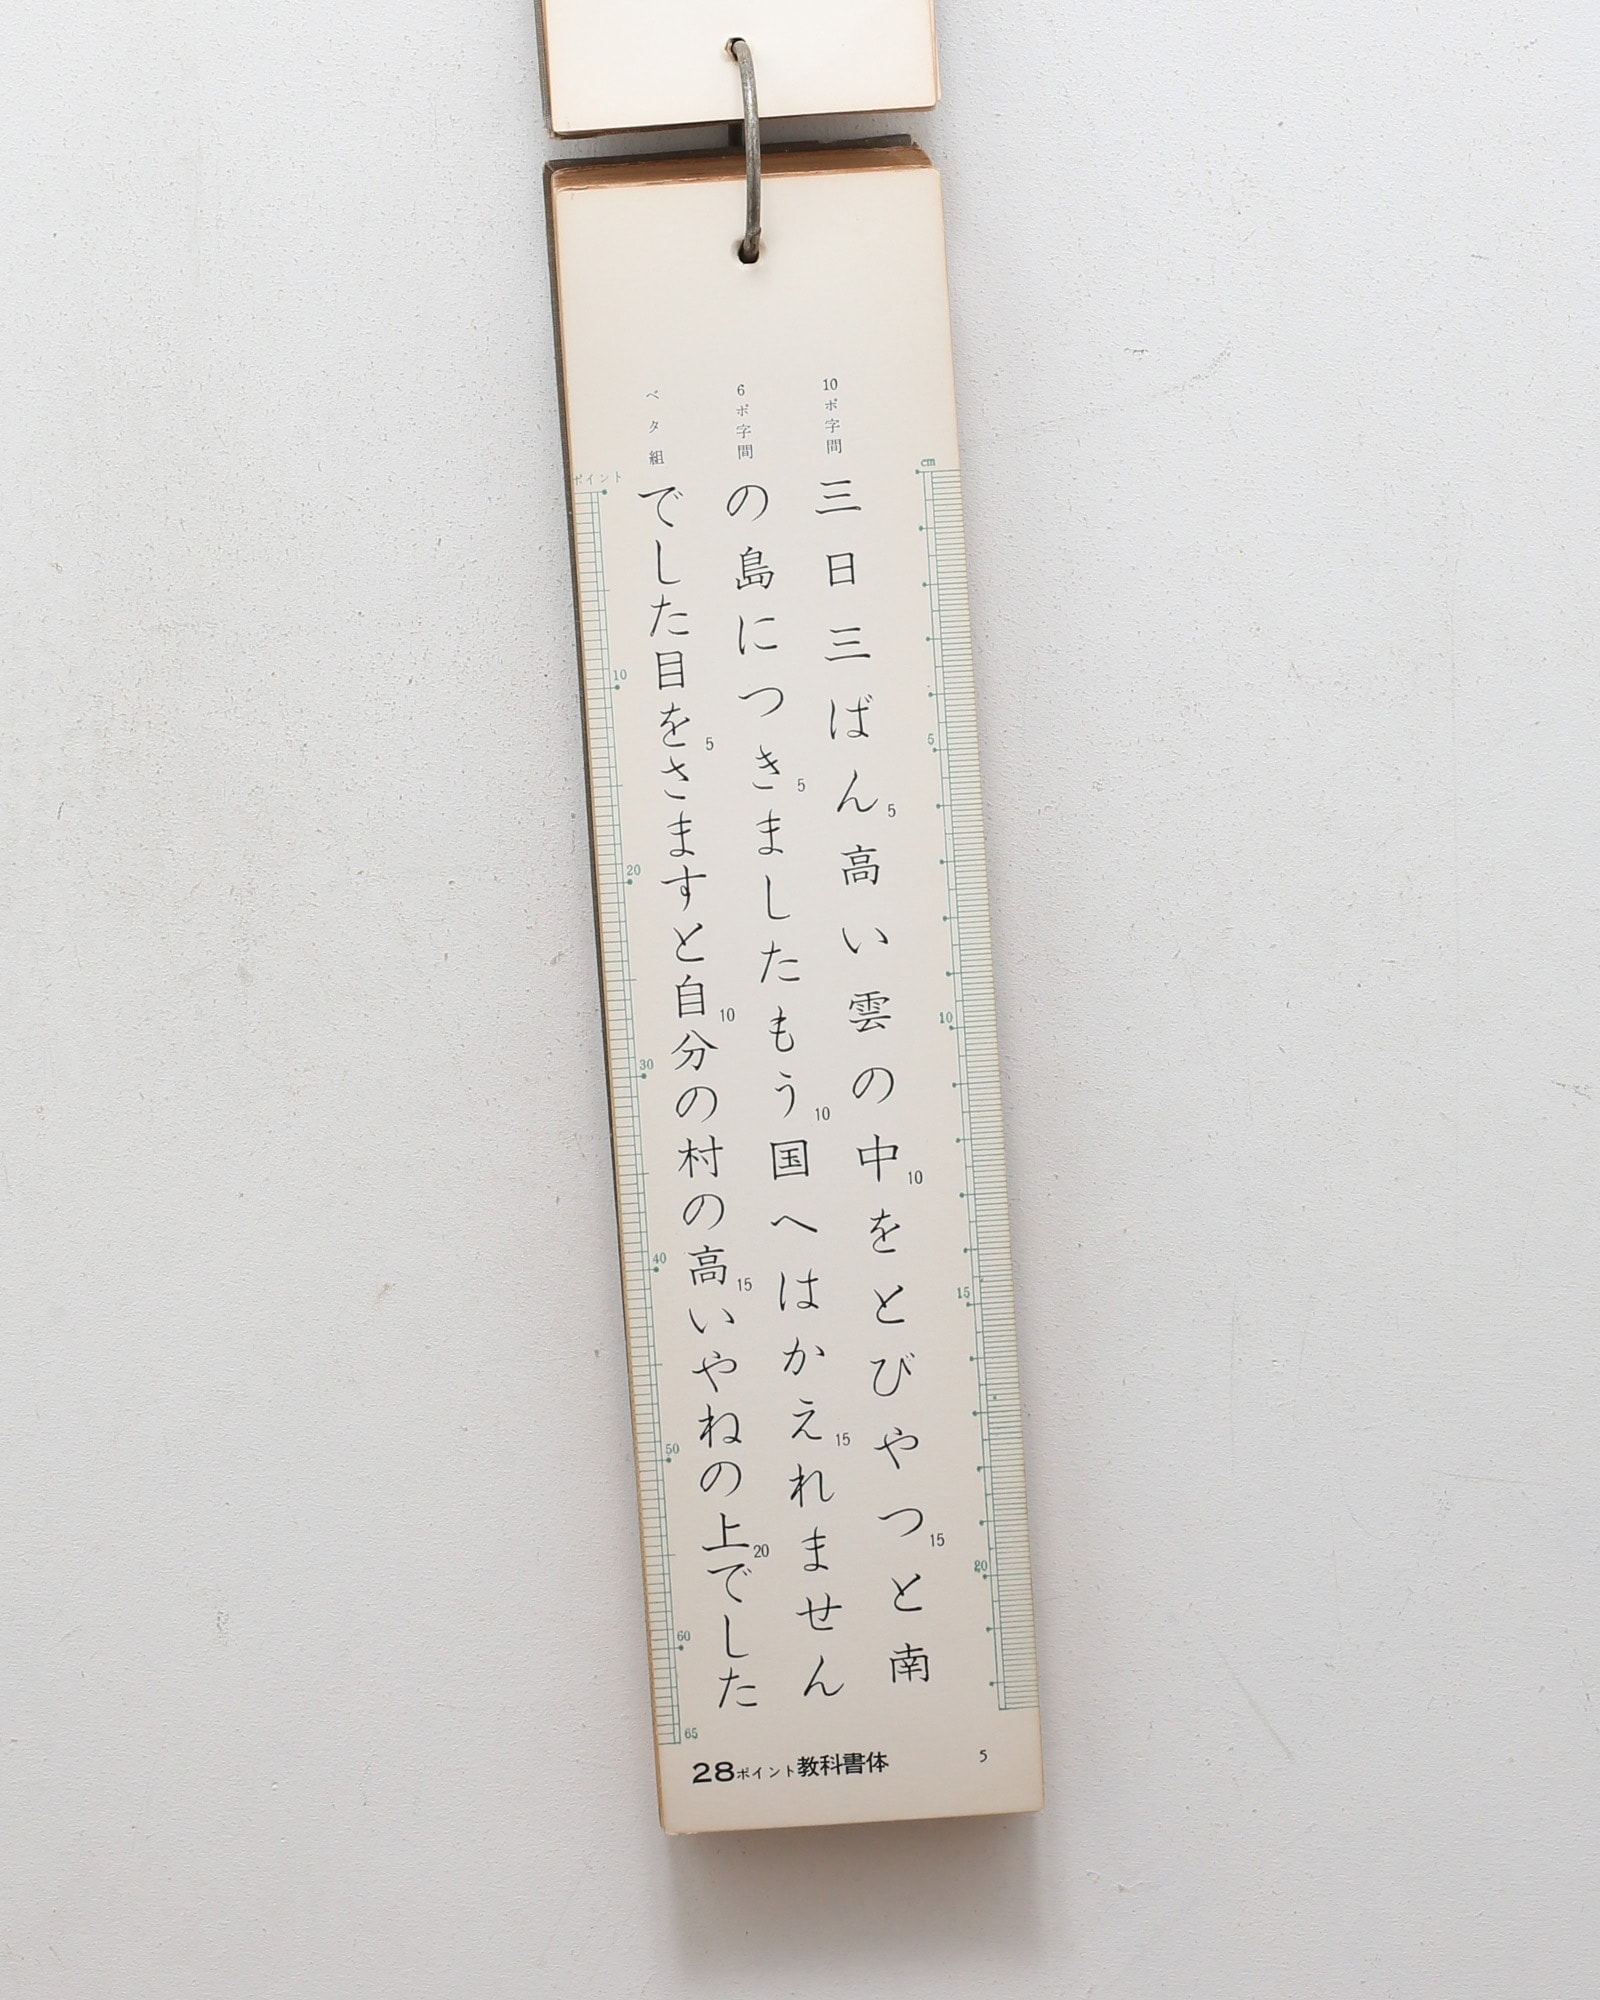 10ポ字間
三日三ばん高い雲の中をとびやつと南
6ポ字間
の島につきましたもう国へはかえれません
ベタ組
でした目をさますと自分の村の高いやねの上でした
cm
5
10
15
20
ポイント
10
20
30
40
50
60
65
5
10
15
5
10
15
5
10
15
20
28ポイント教科書体
5